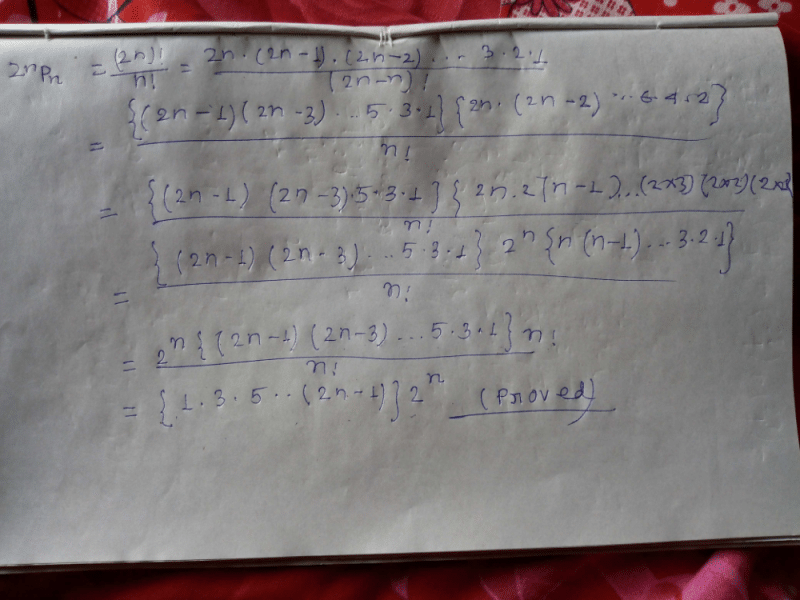 2nPn = (2n)!/n! = 2n·(2n-1)·(2n-2)...3·2·1/(2n-n)!
= {(2n-1)(2n-3)...5·3·1}{2n·(2n-2)...6·4·2}/n!
= {(2n-1)(2n-3)·5·3·1}{2n·2(n-1)...(2×3)(2×2)(2×1)}/n!
= {(2n-1)(2n-3)...5·3·1} 2ⁿ{n(n-1)...3·2·1}/n!
= 2ⁿ{(2n-1)(2n-3)...5·3·1}n!/n!
= {1·3·5..(2n-1)}2ⁿ (Proved)